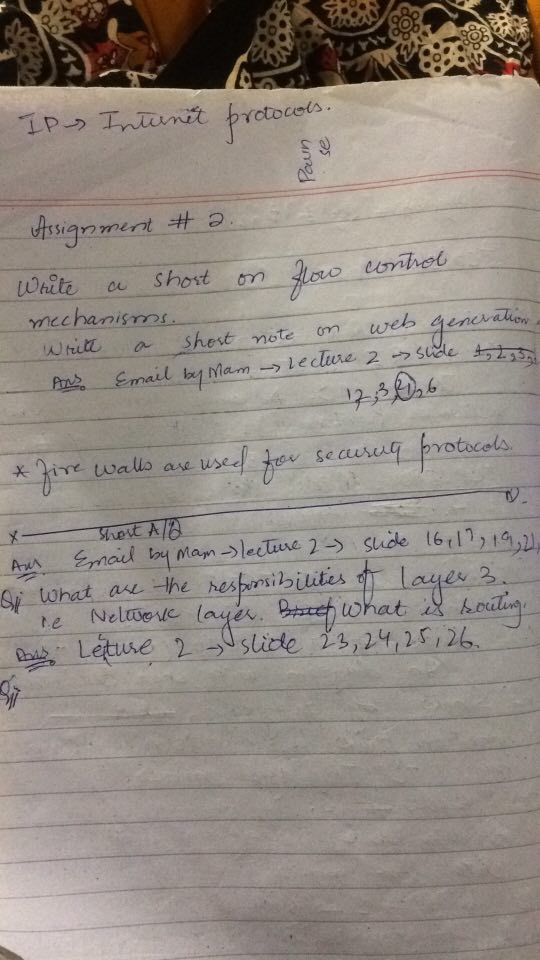 IP → Internet protocols.
Assignment # 2.
Write a short on flow control
mechanisms.
Write a short note on web generation
Ans. Email by Mam → Lecture 2 → slide 1, 2, 3,
17, 3, 21, 6
* fire walls are used for security protocols.
x
short A/Q
Ans Email by Mam → lecture 2 → slide 16, 17, 19, 21,
Q What are the responsibilities of layer 3.
i.e Network layer. Brief what is routing.
Ans: Lecture 2 → slide 23, 24, 25, 26.
Q